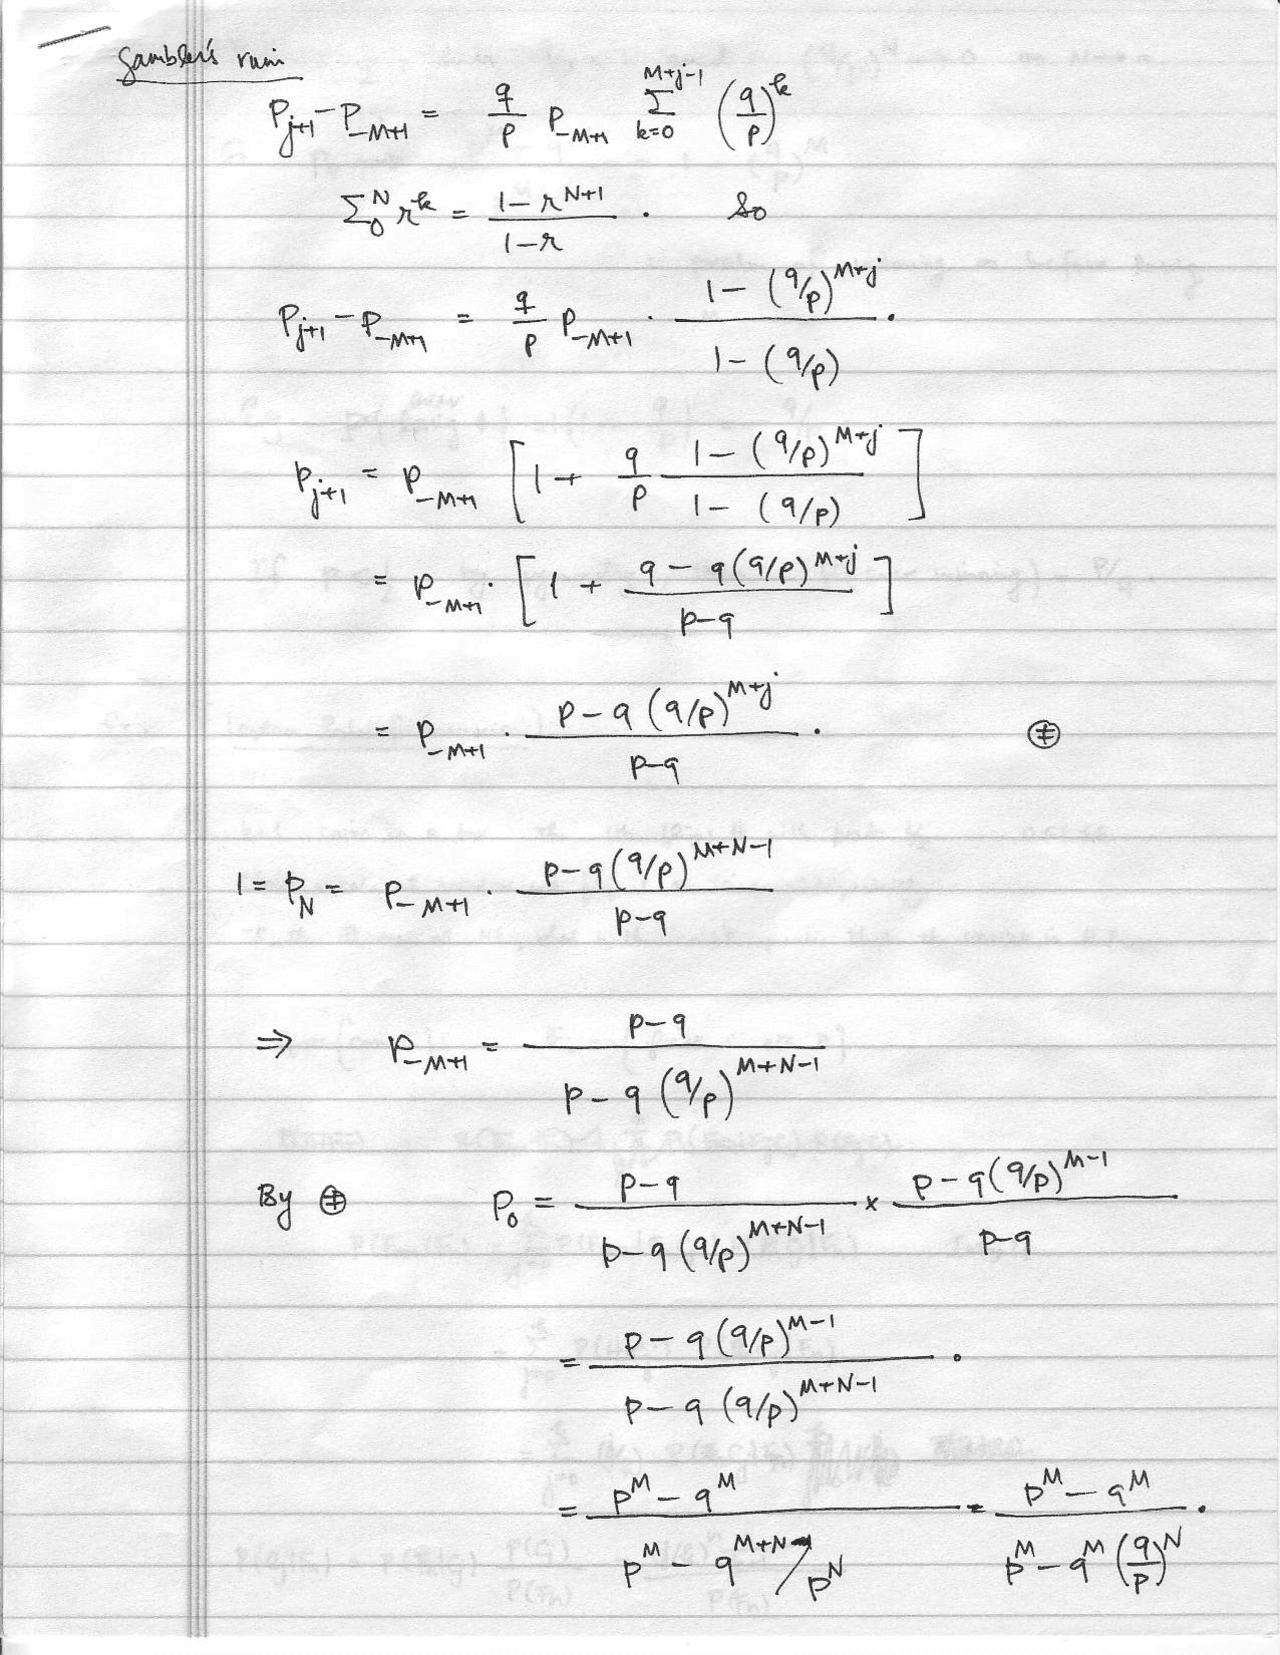 Gambler's ruin
P_{j+1} - P_{-M+1} = \frac{q}{p} P_{-M+1} \sum_{k=0}^{M+j-1} \left(\frac{q}{p}\right)^k
\sum_0^N r^k = \frac{1 - r^{N+1}}{1 - r} . So
P_{j+1} - P_{-M+1} = \frac{q}{p} P_{-M+1} \cdot \frac{1 - (q/p)^{M+j}}{1 - (q/p)} .
P_{j+1} = P_{-M+1} \left[ 1 + \frac{q}{p} \frac{1 - (q/p)^{M+j}}{1 - (q/p)} \right]
= P_{-M+1} \cdot \left[ 1 + \frac{q - q(q/p)^{M+j}}{p - q} \right]
= P_{-M+1} \cdot \frac{p - q(q/p)^{M+j}}{p - q} . ⊕
1 = P_N = P_{-M+1} \cdot \frac{p - q(q/p)^{M+N-1}}{p - q}
⇒ P_{-M+1} = \frac{p - q}{p - q(q/p)^{M+N-1}}
By ⊕ P_0 = \frac{p - q}{p - q(q/p)^{M+N-1}} × \frac{p - q(q/p)^{M-1}}{p - q}
= \frac{p - q(q/p)^{M-1}}{p - q(q/p)^{M+N-1}} .
= \frac{p^M - q^M}{p^M - q^{M+N}/p^N} = \frac{p^M - q^M}{p^M - q^M \left(\frac{q}{p}\right)^N} .